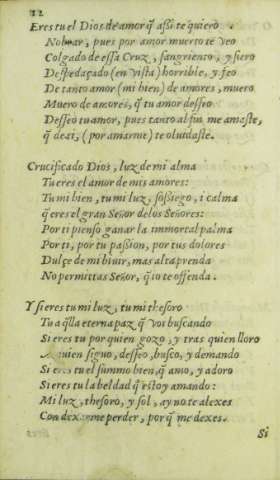 12
Eres tu el Dios de amor q̃ aßi te quiero
pues por amor muerto te veo
Colgado de essa Cruz, sangriento, y fiero
Despedaçado (en vista) horrible, y feo
De tanto amor (mi bien) de amores, muero
Muero de amores, q̃ tu amor desseo
Desseo tu amor, pues tanto al fin me amaste,
q̃ de ti, (por amarme) te oluidaste.
Crucificado Dios, luz de mi alma
Tu eres el amor de mis amores:
Tu mi bien, tu mi luz, soßiego, i calma
q̃ eres el gran Señor de los Señores:
Por ti pienso ganar la immortal palma
Por ti, por tu paßion, por tus dolores
Dulçe de mi biuir, mas alta prenda
No permittas Señor, q̃ io te offenda.
Y si eres tu mi luz, tu mi thesoro
Tu aq̃lla eterna paz q̃ voi buscando
Si eres tu por quien gozo, y tras quien lloro
A quien siguo, desseo, busco, y demando
Si eres tu el summo bien, q̃ amo, y adoro
Si eres tu la beldad q̃ estoy amando:
Mi luz, thesoro, y sol, ay no te alexes
Con dexarme perder, por q̃ me dexes.
Si